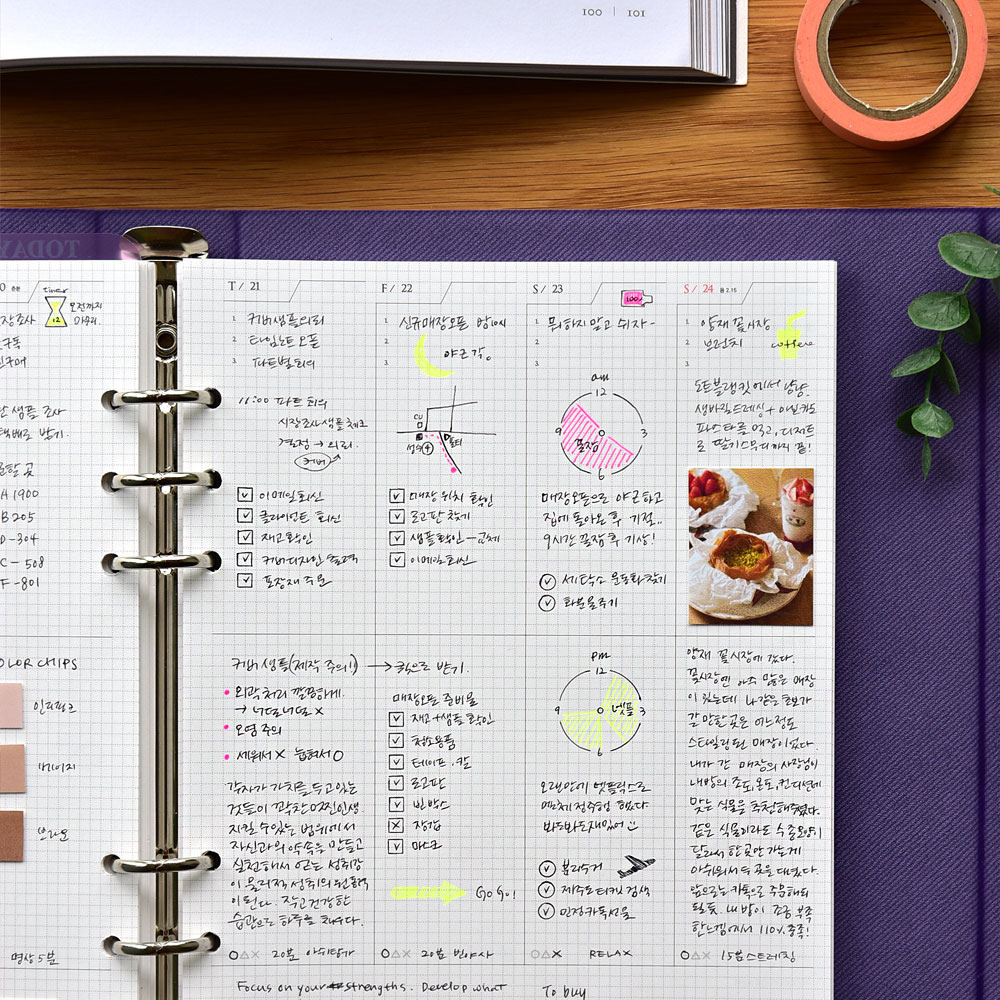 100 | 101
TODAY
timer
12
오전까지
마무리.
장조사
샘플 조사
택배로 받기.
H 1900
B 205
D-304
C - 508
F - 801
COLOR CHIPS
인디핑크
베이지
브라운
명상 5분
T / 21
1 커버샘플의뢰
2 타임노트 오픈
3 파트별 회의
11:00 파트 회의
시장조사 샘플 체크
결정 → 의뢰.
커버
이메일 회신
클라이언트 회신
재고확인
커버디자인 출력
포장재 주문
커버 샘플(제작 주의!) → 퀵으로 받기.
외곽 처리 깔끔하게.
→ 너덜너덜 x
오염 주의
세워서 X 눕혀서 O
각자가 가치를 두고 있는
것들이 꽉찬 멋진인생
지킬 수 있는 범위에서
자신과의 약속을 만들고
실천해서 얻는 성취감
이 물리적 성취의 원동력
이 된다. 작고 건강한
습관으로 하루를 채우다.
O△X 20분 아쉬탕가
F / 22
1 신규매장오픈 PM 10시
2
3
야근각。
CU
4
매장 위치 확인
로고판 찾기
샘플확인 - 교체
이메일 회신
매장오픈 준비물
재고+샘플 확인
청소용품
테이프. 칼
로고판
빈박스
장갑
마스크
Go Go!
O△X 20분 빈야사
S / 23
100%
1 뭐 하지 말고 쉬자 -
2
3
am
12
3
6
9
꿀잠
매장오픈으로 야근하고
집에 돌아온 후 기절..
9시간 꿀잠 후 기상!
세탁소 운동화찾기
화분물주기
pm
12
3
6
9
넷플
오랜만에 넷플릭스로
영화 정주행 했다
봐도봐도 재밌어
분리수거
제주도 티켓 검색
민정카톡선물
O△X RELAX
S / 24 음 2.10
1 양재 꽃시장
2 브런치
3
coffee
도트블랭킷에서 냠냠.
파스타를 먹고, 디저트
로 딸기스무디까지 끝!
양재 꽃시장에 갔다.
꽃시장엔 아주 많은 매장
이 있는데 나같은 초보가
갈 만할 곳은 어느정도
스타일링 된 매장이었다.
내가 간 매장의 사장님이
내방의 조도,온도,컨디션에
맞는 식물을 추천해주셨다.
같은 식물이라도 수종모양이
달라서 한 곳만 가는게
아쉬워서 두 곳을 더 봤다.
앞으로는 카톡으로 주문해도
될듯. 내 방이 조금 부족
한 느낌에서 110% 충족!
O△X 15분 스트레칭
Focus on your strengths. Develop what
To buy